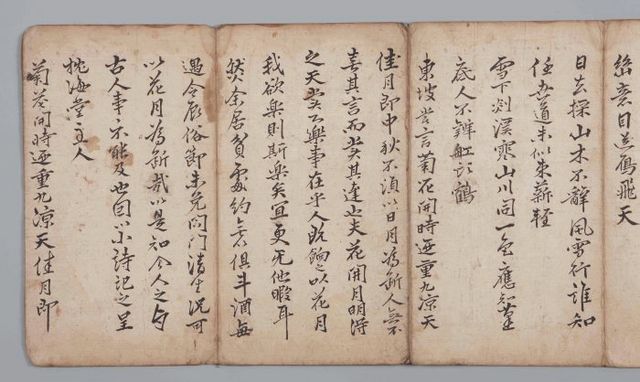 意目送鴈飛天
日去採山木不辭風雪行誰知
任吾道未似束薪輕
雪下剡溪寒山川同一色應知
底人不辨缸與鶴
東坡嘗言菊花開時迺重九凉天
佳月即中秋不須以日月為斷人無
喜其言而其達也夫花開月明得
之天之樂事在乎人既餉之以花月
我欲樂則斯樂矣宜更无他暇耳
然余居貧處約無俱斗酒每
遇令辰俗節未免閉門清坐況可
以花月為斷哉以是知今人之与
古人事不能及也因以小詩記之呈
枕海堂主人
菊花開時迺重九凉天佳月即